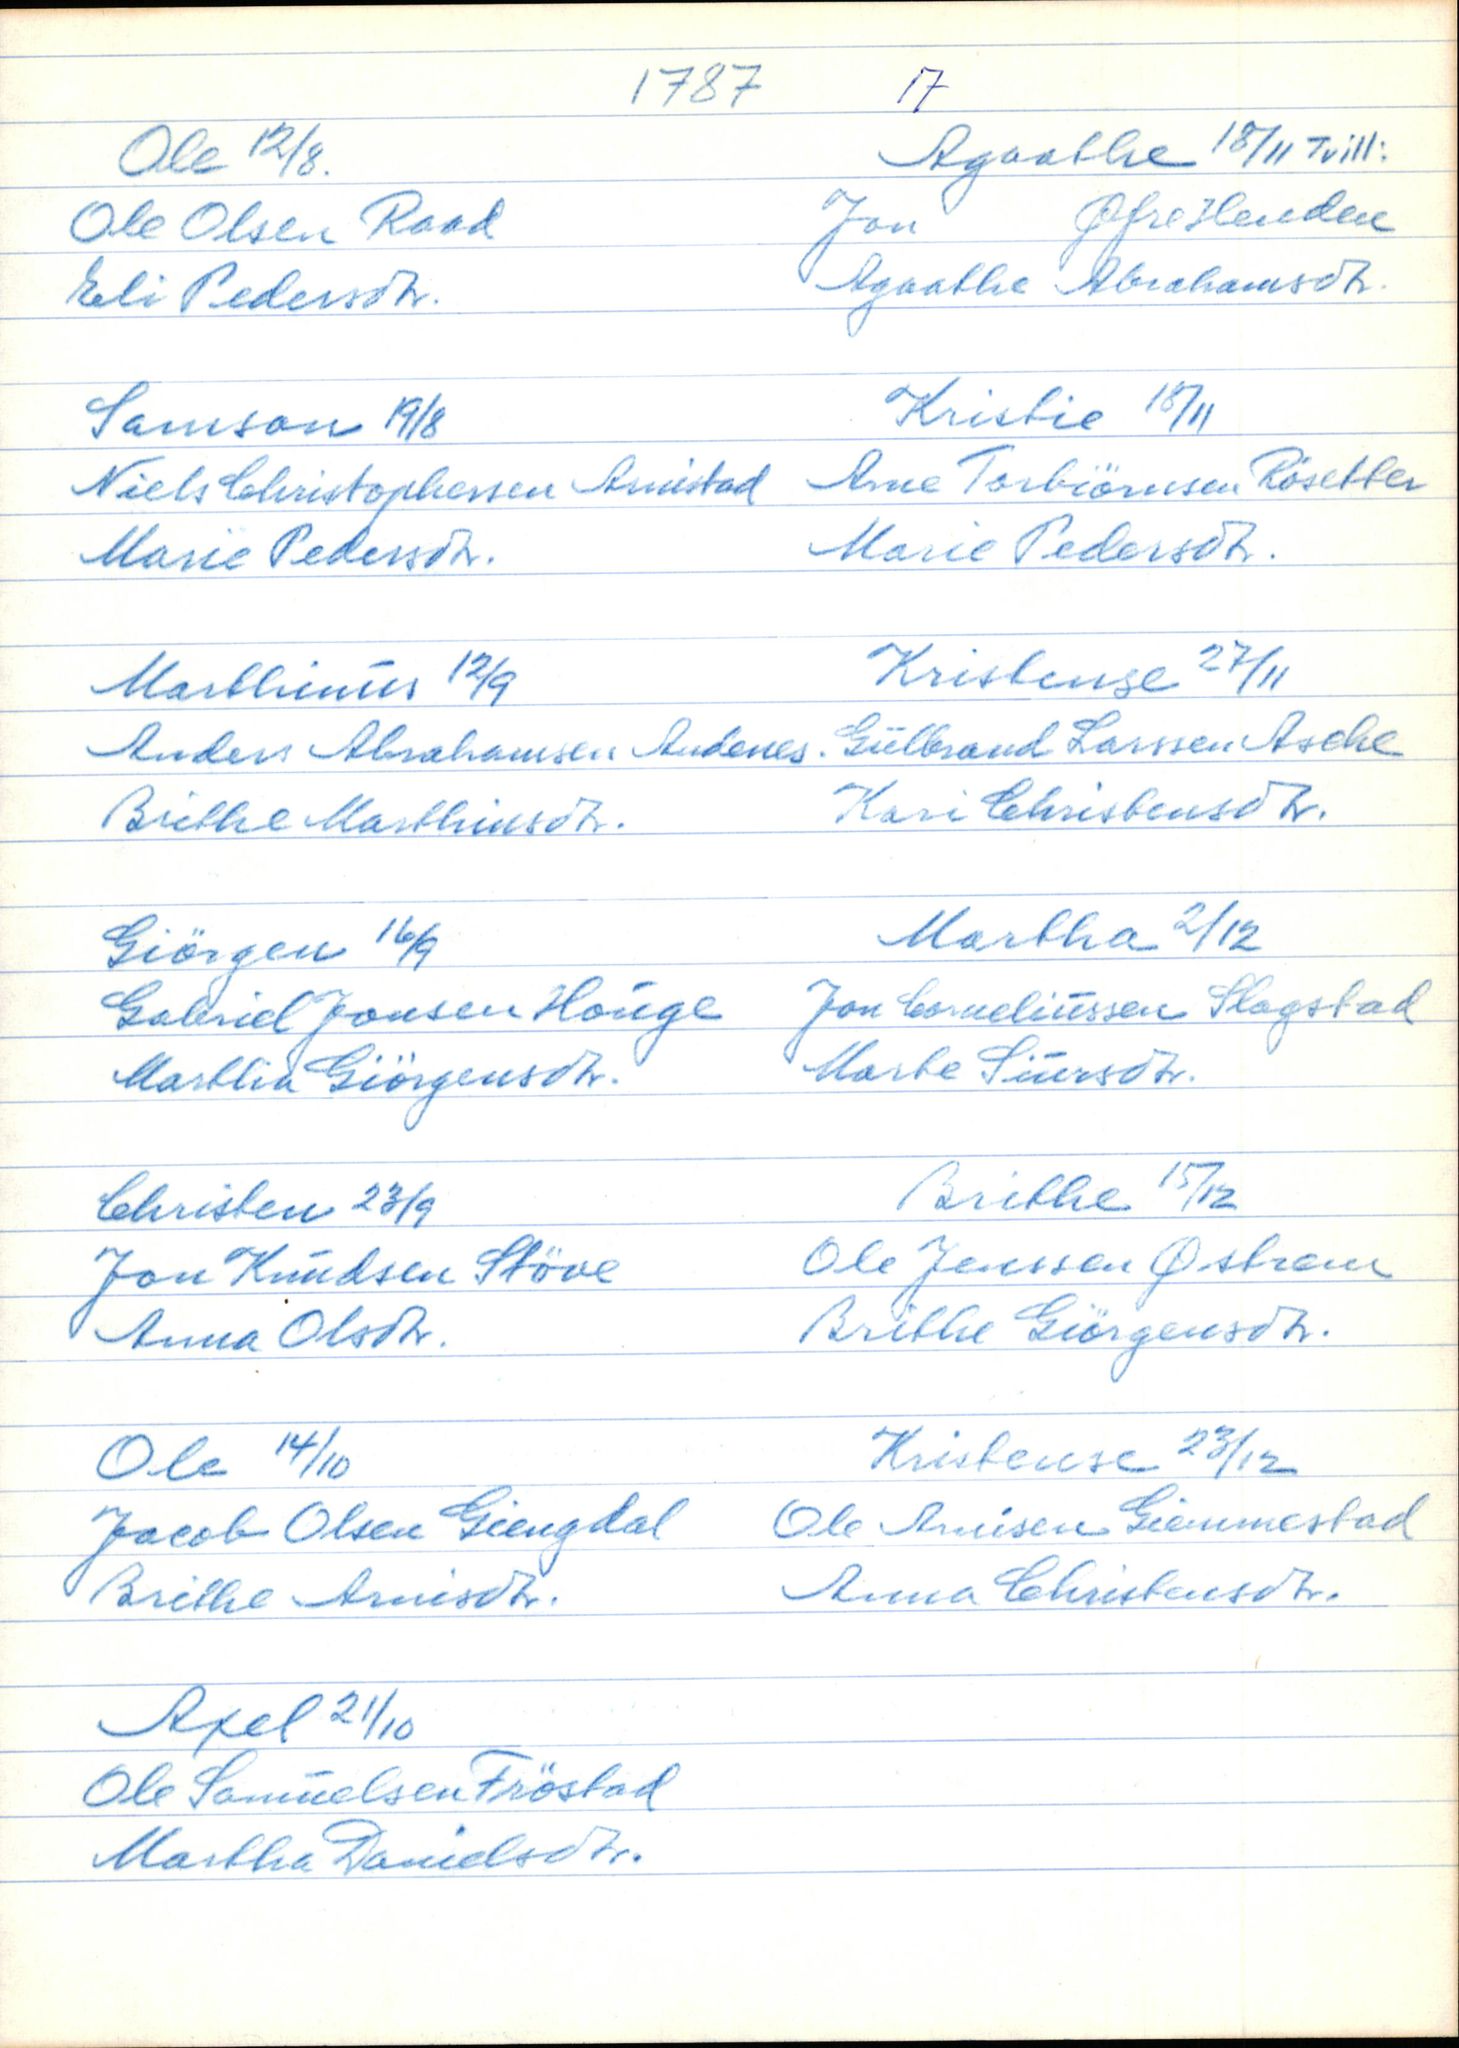 1787 17
Ole 12/8.
Ole Olsen Raad
Eli Pedersdtr.
Samson 19/8
Niels Christophersen Arnistad
Marie Pedersdtr.
Marthinus 12/9
Anders Abrahamsen Andenes.
Brithe Marthinsdtr.
Giörgen 16/9
Gabriel Jonsen Houge
Martha Giörgensdtr.
Christen 23/9
Jon Knudsen Stöve
Anna Olsdtr.
Ole 14/10
Jacob Olsen Giengdal
Brithe Arnisdtr.
Axel 21/10
Ole Samuelsen Fröstad
Martha Danielsdtr.
Agaathe 18/11 Tvill:
Jon Øfre Henden
Agaathe Abrahamsdtr.
Kristie 18/11
Arne Torbiörnsen Rösetter
Marie Pedersdtr.
Kristense 27/11
Gulbrand Larssen Asche
Kari Christensdtr.
Martha 2/12
Jon Corneliussen Slagstad
Marte Siursdtr.
Brithe 15/12
Ole Jenssen Østrem
Brithe Giörgensdtr.
Kristense 23/12
Ole Arnisen Giemmestad
Anna Christensdtr.